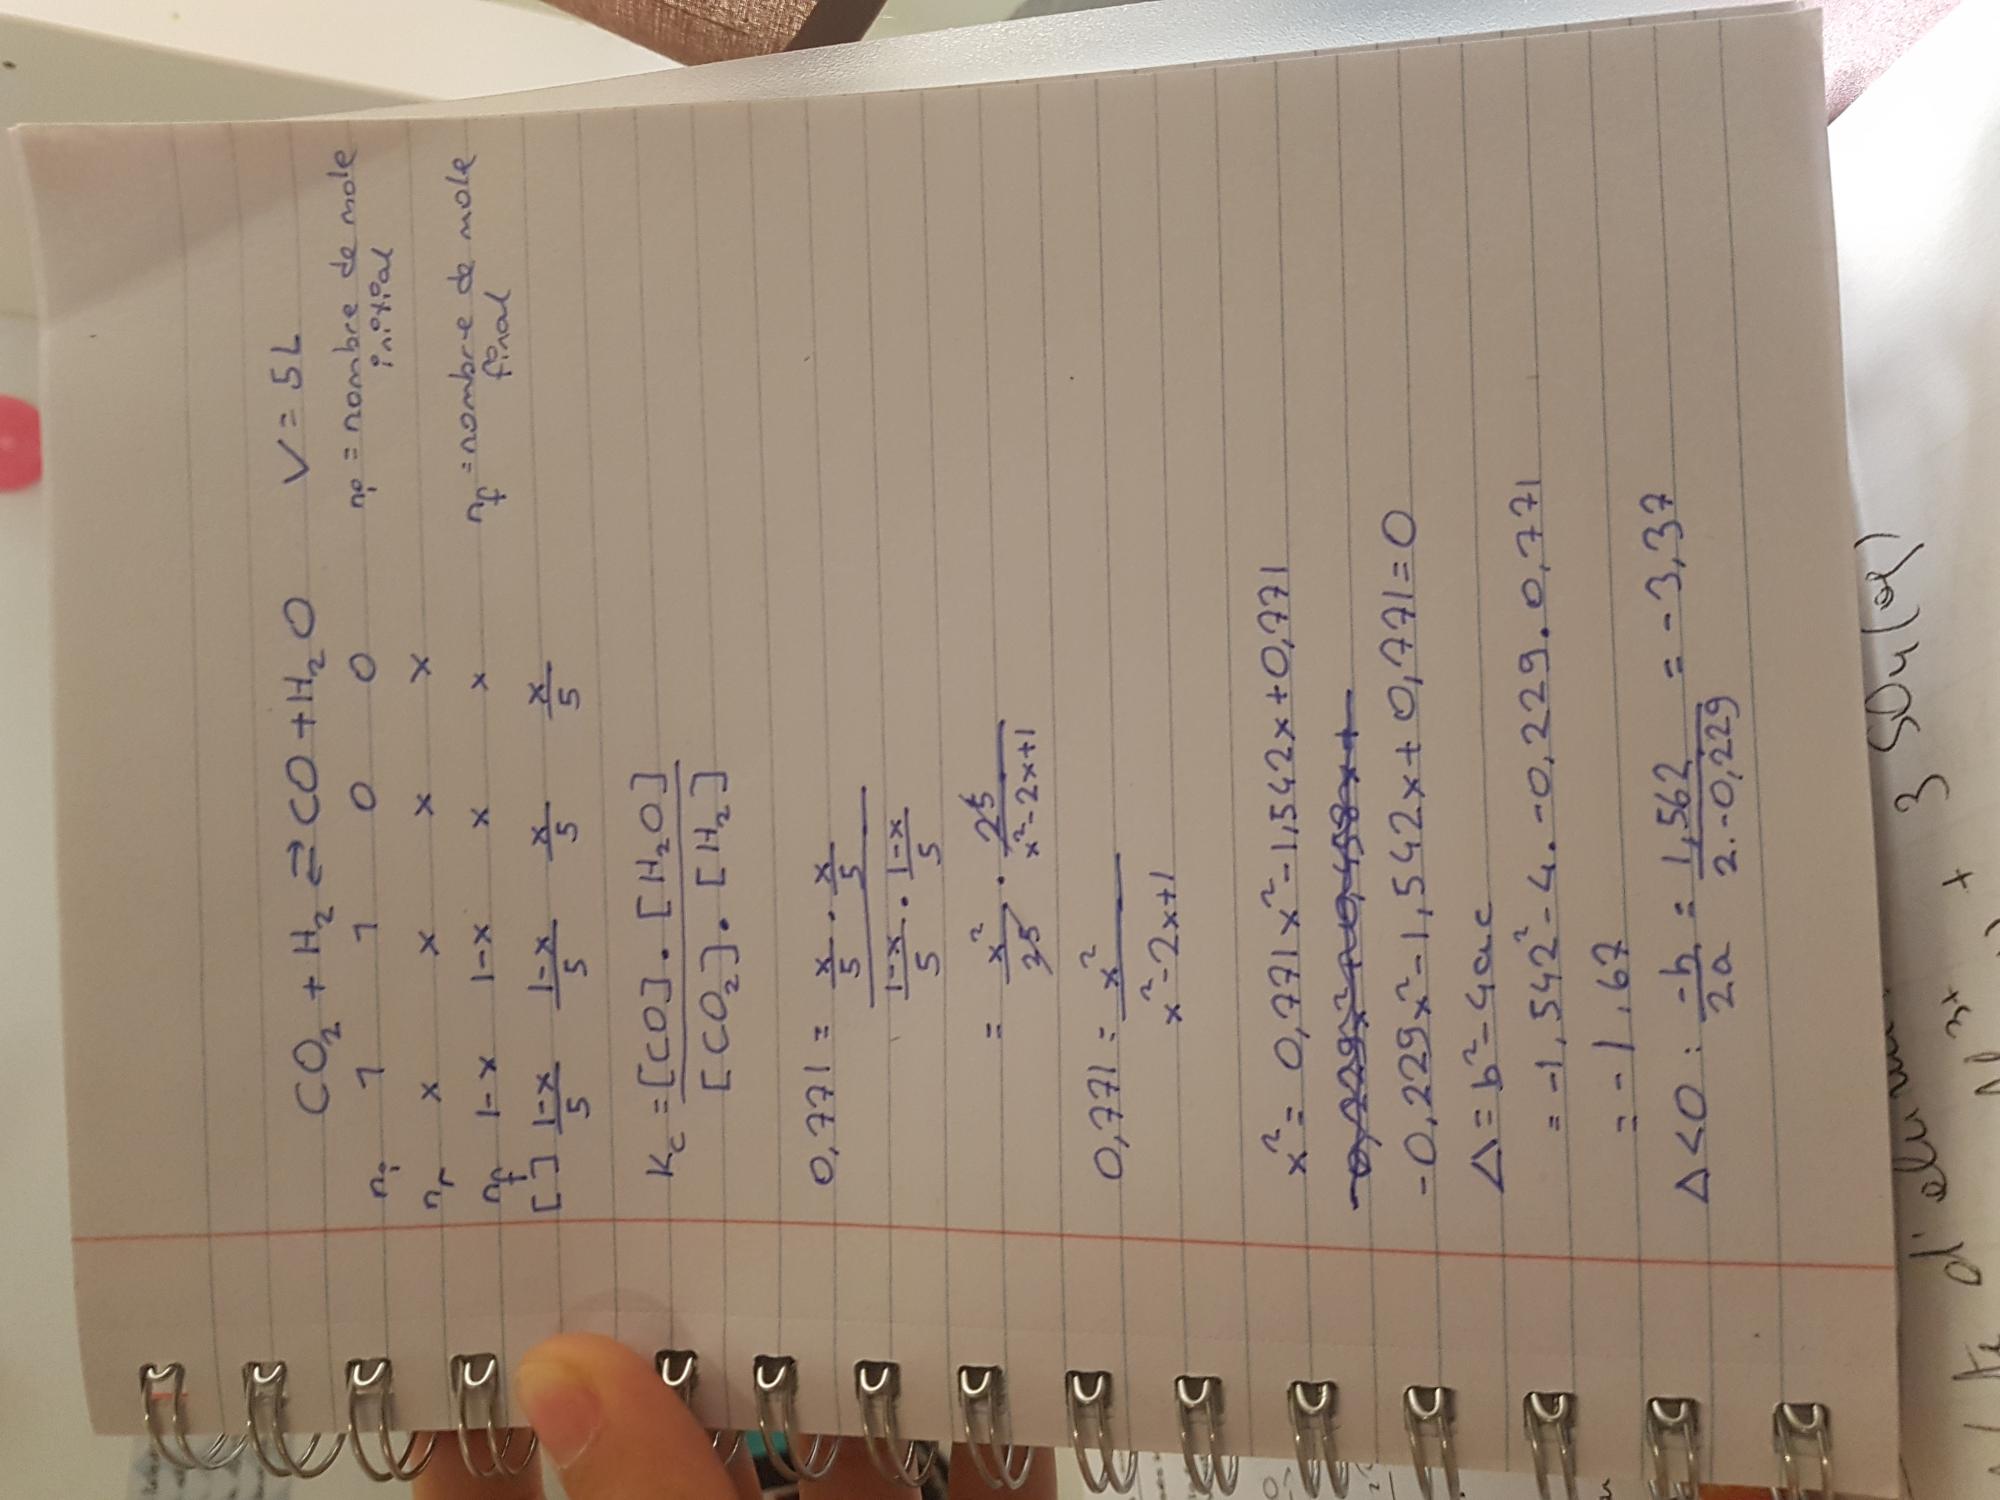 CO₂ + H₂ ⇌ CO + H₂O V = 5L
nᵢ 1 1 0 0 nᵢ = nombre de mole
initial
nᵣ x x x x
n_f 1-x 1-x x x n_f = nombre de mole
final
[ ] (1-x)/5 (1-x)/5 x/5 x/5
K_c = [CO] . [H₂O] / [CO₂] . [H₂]
0,771 = (x/5 . x/5) / ((1-x)/5 . (1-x)/5)
= x²/25 . 25/(x²-2x+1)
0,771 = x²/(x²-2x+1)
x² = 0,771x²-1,542x+0,771
-0,229x²-1,542x+0,771=0
Δ = b²-4ac
= -1,542²-4.-0,229.0,771
= -1,67
Δ<0 : -b/2a = 1,562/(2.-0,229) = -3,37
3 SO₄
d'